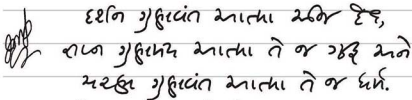 દર્શન ગુણવંત આત્મા અમિ દેવ,
જ્ઞાન ગુણમય આત્મા તે જ ગુરૂ અને
ચરણ ગુણવંત આત્મા તે જ ધર્મ.